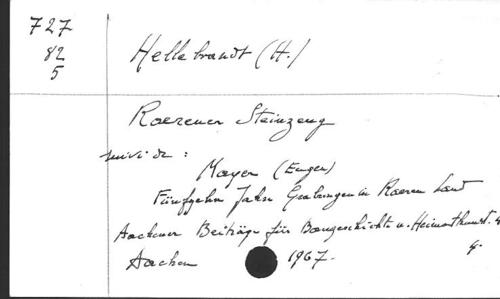 727
82
5
Hellebrandt (H.)
Raerener Steinzeug
suivi de :
Mayer (Eugen)
Fünfzehn Jahre Grabungen in Raeren Land
Aachener Beiträge für Baugeschichte u. Heimatkunst. 4
Aachen 1967.